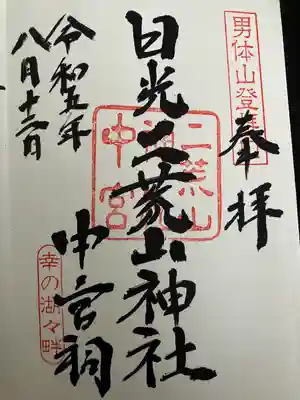 男体山登拝
奉拝
二荒山
中宮
日光二荒山神社
中宮祠
令和五年
八月十三日
幸の湖々畔